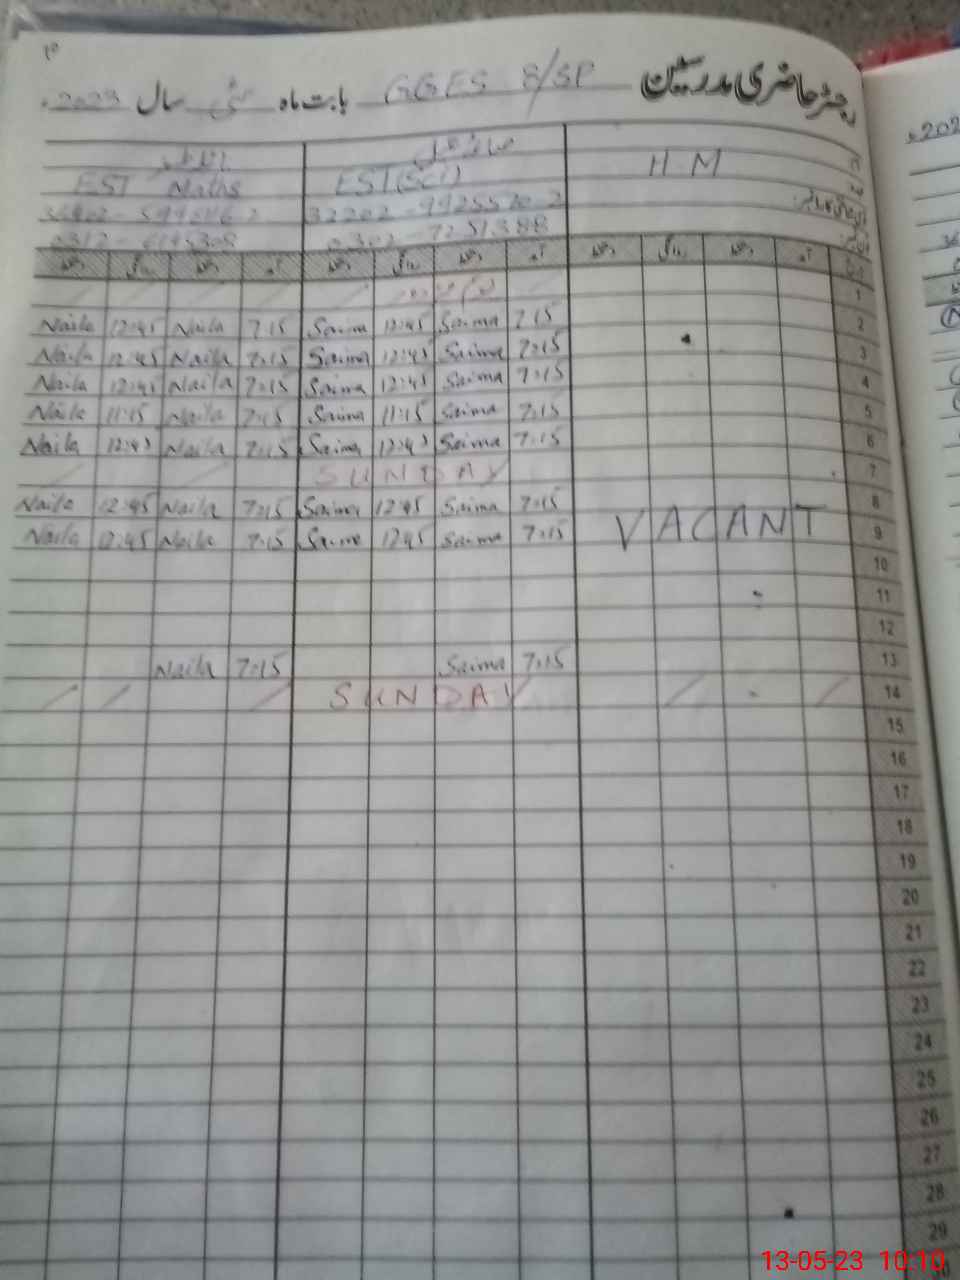 رجسٹر حاضری مدرسین GGES 8/SP بابت ماہ مئی سال 2023ء
H.M
EST(Sci) EST Maths
32202-9925520-2
0302-7251388
1
2 7:15 Saima 12:45 Saima 7:15 Naila 12:45 Naila
3 7:15 Saima 12:45 Saima 7:15 Naila 12:45 Naila
4 7:15 Saima 12:45 Saima 7:15 Naila 12:45 Naila
5 7:15 Saima 11:15 Saima 7:15 Naila 11:15 Naila
6 7:15 Saima 12:45 Saima 7:15 Naila 12:45 Naila
7 SUNDAY
8 7:15 Saima 12:45 Saima 7:15 Naila 12:45 Naila
9 VACANT 7:15 Saima 12:45 Saima 7:15 Naila 12:45 Naila
10
11
12
13 7:15 Saima 7:15 Naila
14 SUNDAY
15
16
17
18
19
20
21
22
23
24
25
26
27
28
29
13-05-23 10:10